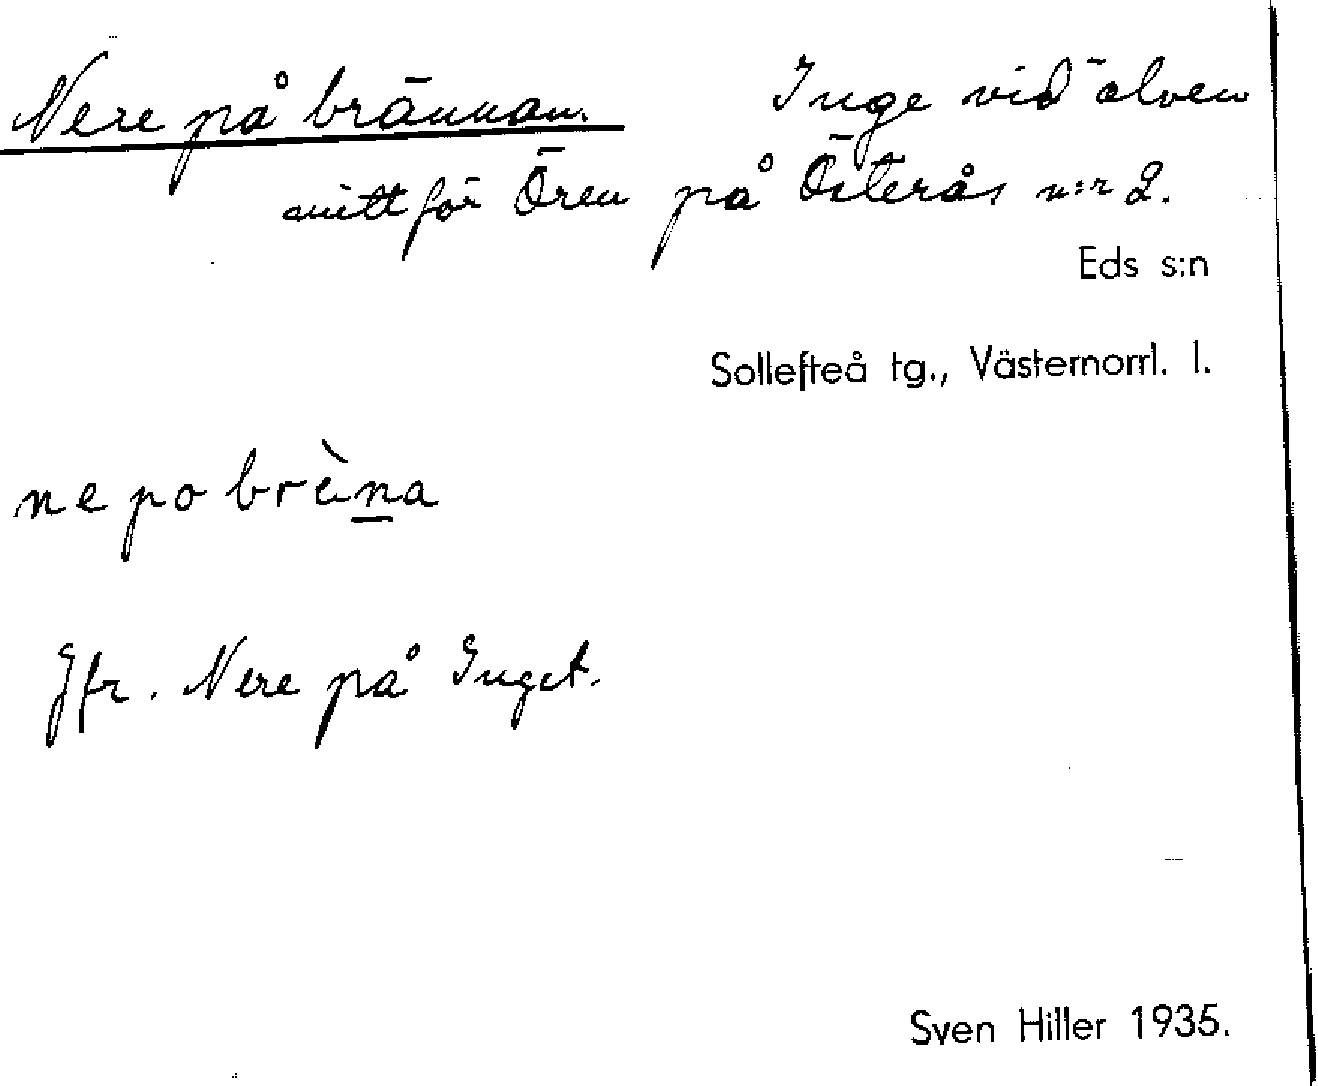 Nere på brännan. Inge vid älven
mitt för Ören på Österås n:r 2.
Eds s:n
Sollefteå tg., Västernorrl. l.
ne po bräna
Jfr. Nere på Inget.
Sven Hiller 1935.